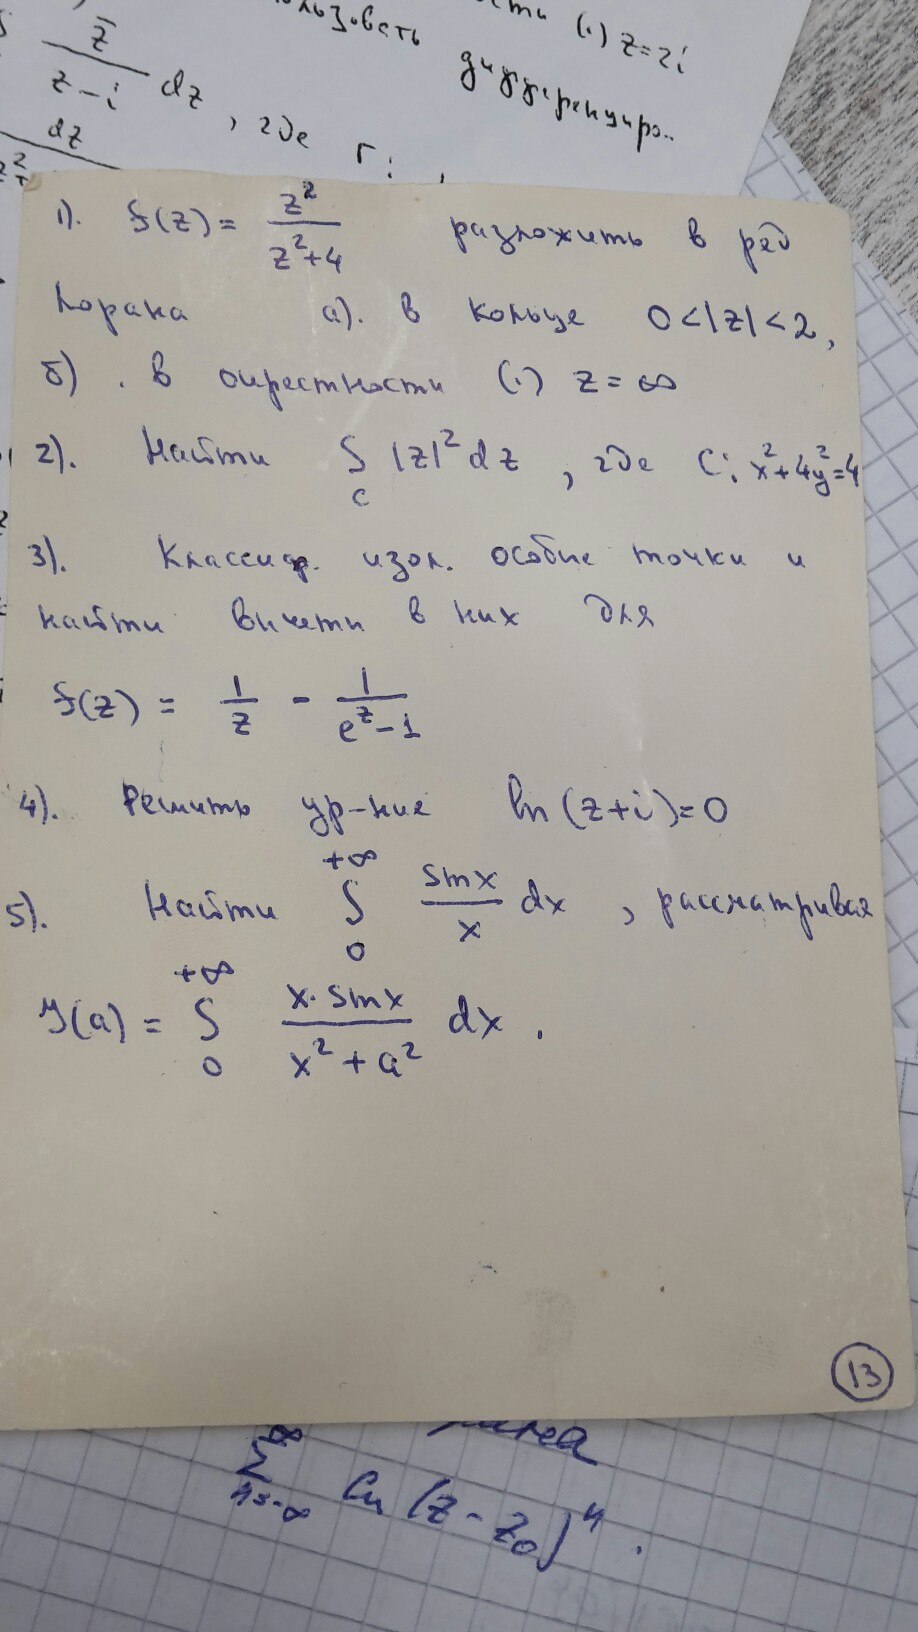 сти (.) z=2i
ользовать дифференциро..
z̄/(z-i) dz, где Г:
dz
1). f(z)= z²/(z²+4) разложить в ряд
Лорана а). в кольце 0<|z|<2,
б). в окрестности (.) z=∞
2). Найти ∫_C |z|²dz, где C: x²+4y²=4
3). Классиф. изол. особые точки и
найти вычеты в них для
f(z) = 1/z - 1/(e^z-1)
4). Решить ур-ние ln(z+i)=0
5). Найти ∫_0^{+∞} sinx/x dx, рассматривая
J(a) = ∫_0^{+∞} x·sinx/(x²+a²) dx.
13
∑_{n=-∞}^{∞} Cn (z-z₀)^n.